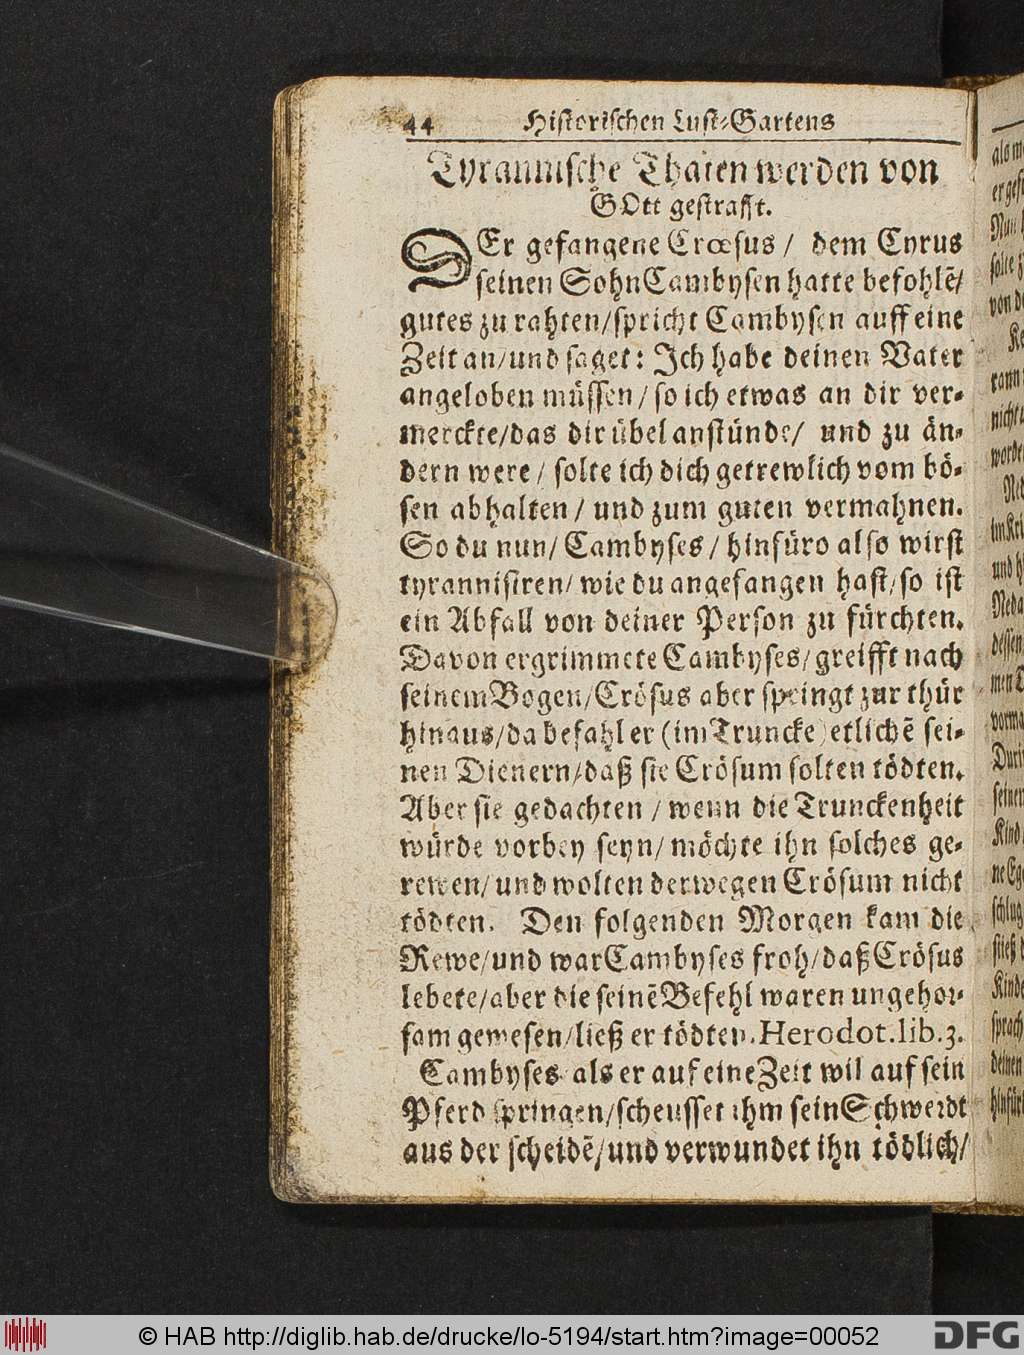 44 Historischen Lust-Gartens
Tyrannische Thaten werden von
GOtt gestrafft.
DEr gefangene Crœsus / dem Cyrus
seinen Sohn Cambysen hatte befohlē/
gutes zu rahten/spricht Cambysen auff eine
Zeit an/und saget: Jch habe deinen Vater
angeloben müssen/so ich etwas an dir ver-
merckte/das dir übel anstünde/ und zu än-
dern were/ solte ich dich getrewlich vom bö-
sen abhalten/ und zum guten vermahnen.
So du nun/ Cambyses/ hinfüro also wirst
tyrannisiren/ wie du angefangen hast/so ist
ein Abfall von deiner Person zu fürchten.
Davon ergrimmete Cambyses/greifft nach
seinem Bogen/Crösus aber springt zur thür
hinaus/da befahl er (im Truncke) etlichē sei-
nen Dienern/daß sie Crösum solten tödten.
Aber sie gedachten / wenn die Trunckenheit
würde vorbey seyn/ möchte ihn solches ge-
rewen/und wolten derwegen Crösum nicht
tödten. Den folgenden Morgen kam die
Rewe/und war Cambyses froh/daß Crösus
lebete/aber die seinē Befehl waren ungehor-
sam gewesen/ließ er tödten. Herodot.lib.3.
Cambyses als er auf eine Zeit wil auf sein
Pferd springen/scheusset ihm sein Schwerdt
aus der scheidē/und verwundet ihn tödlich/
© HAB http://diglib.hab.de/drucke/lo-5194/start.htm?image=00052
DFG